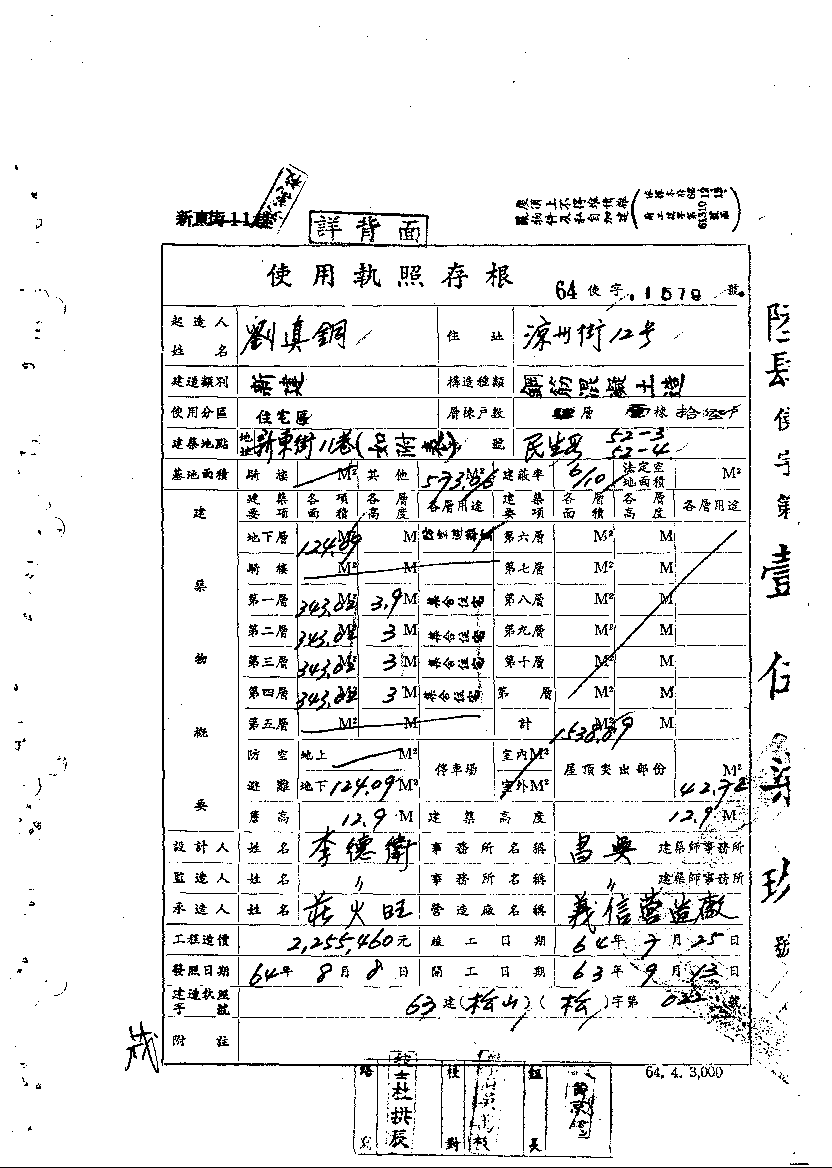 新東街11巷
詳背面
屋頂上不得堆積雜
物件及私自加建
使用執照存根
64 使字 1579 號
起造人姓名 劉真鋼 住址 涼州街12号
建造類別 新建 構造種類 鋼筋混凝土造
使用分區 住宅區 層棟戶數 層 棟
建築地點 地址 新東街11巷( ) 號 民生段 52-3 52-4
基地面積 騎樓 M² 其他 573.66 M² 建蔽率 6/10 法定空地面積 M²
建築物概要 建築要項 各項面積 各層高度 各層用途 建築要項 各層面積 各層高度 各層用途
地下層 124.09 M² M 第六層 M² M
騎樓 M² M 第七層 M² M
第一層 343.82 M² 3.9 M 集合住宅 第八層 M² M
第二層 343.82 M² 3 M 集合住宅 第九層 M² M
第三層 343.82 M² 3 M 集合住宅 第十層 M² M
第四層 343.82 M² 3 M 集合住宅 第 層 M² M
第五層 M² M 計 1538.89 M² M
防空避難 地上 M² 停車場 室內M² 屋頂突出部份 M²
地下 124.09 M² 室外M² 42.72
簷高 12.9 M 建築高度 12.9 M
設計人 姓名 李德衛 事務所名稱 昌興 建築師事務所
監造人 姓名 〃 事務所名稱 〃 建築師事務所
承造人 姓名 莊火旺 營造廠名稱 義信營造廠
工程造價 2,255,460元 竣工日期 64年7月25日
發照日期 64年8月8日 開工日期 63年9月13日
建造執照字號 63建(松山)(松)字第 022 號
附註
64. 4. 3,000
陸肆使字第壹伍柒玖號
校對
組長